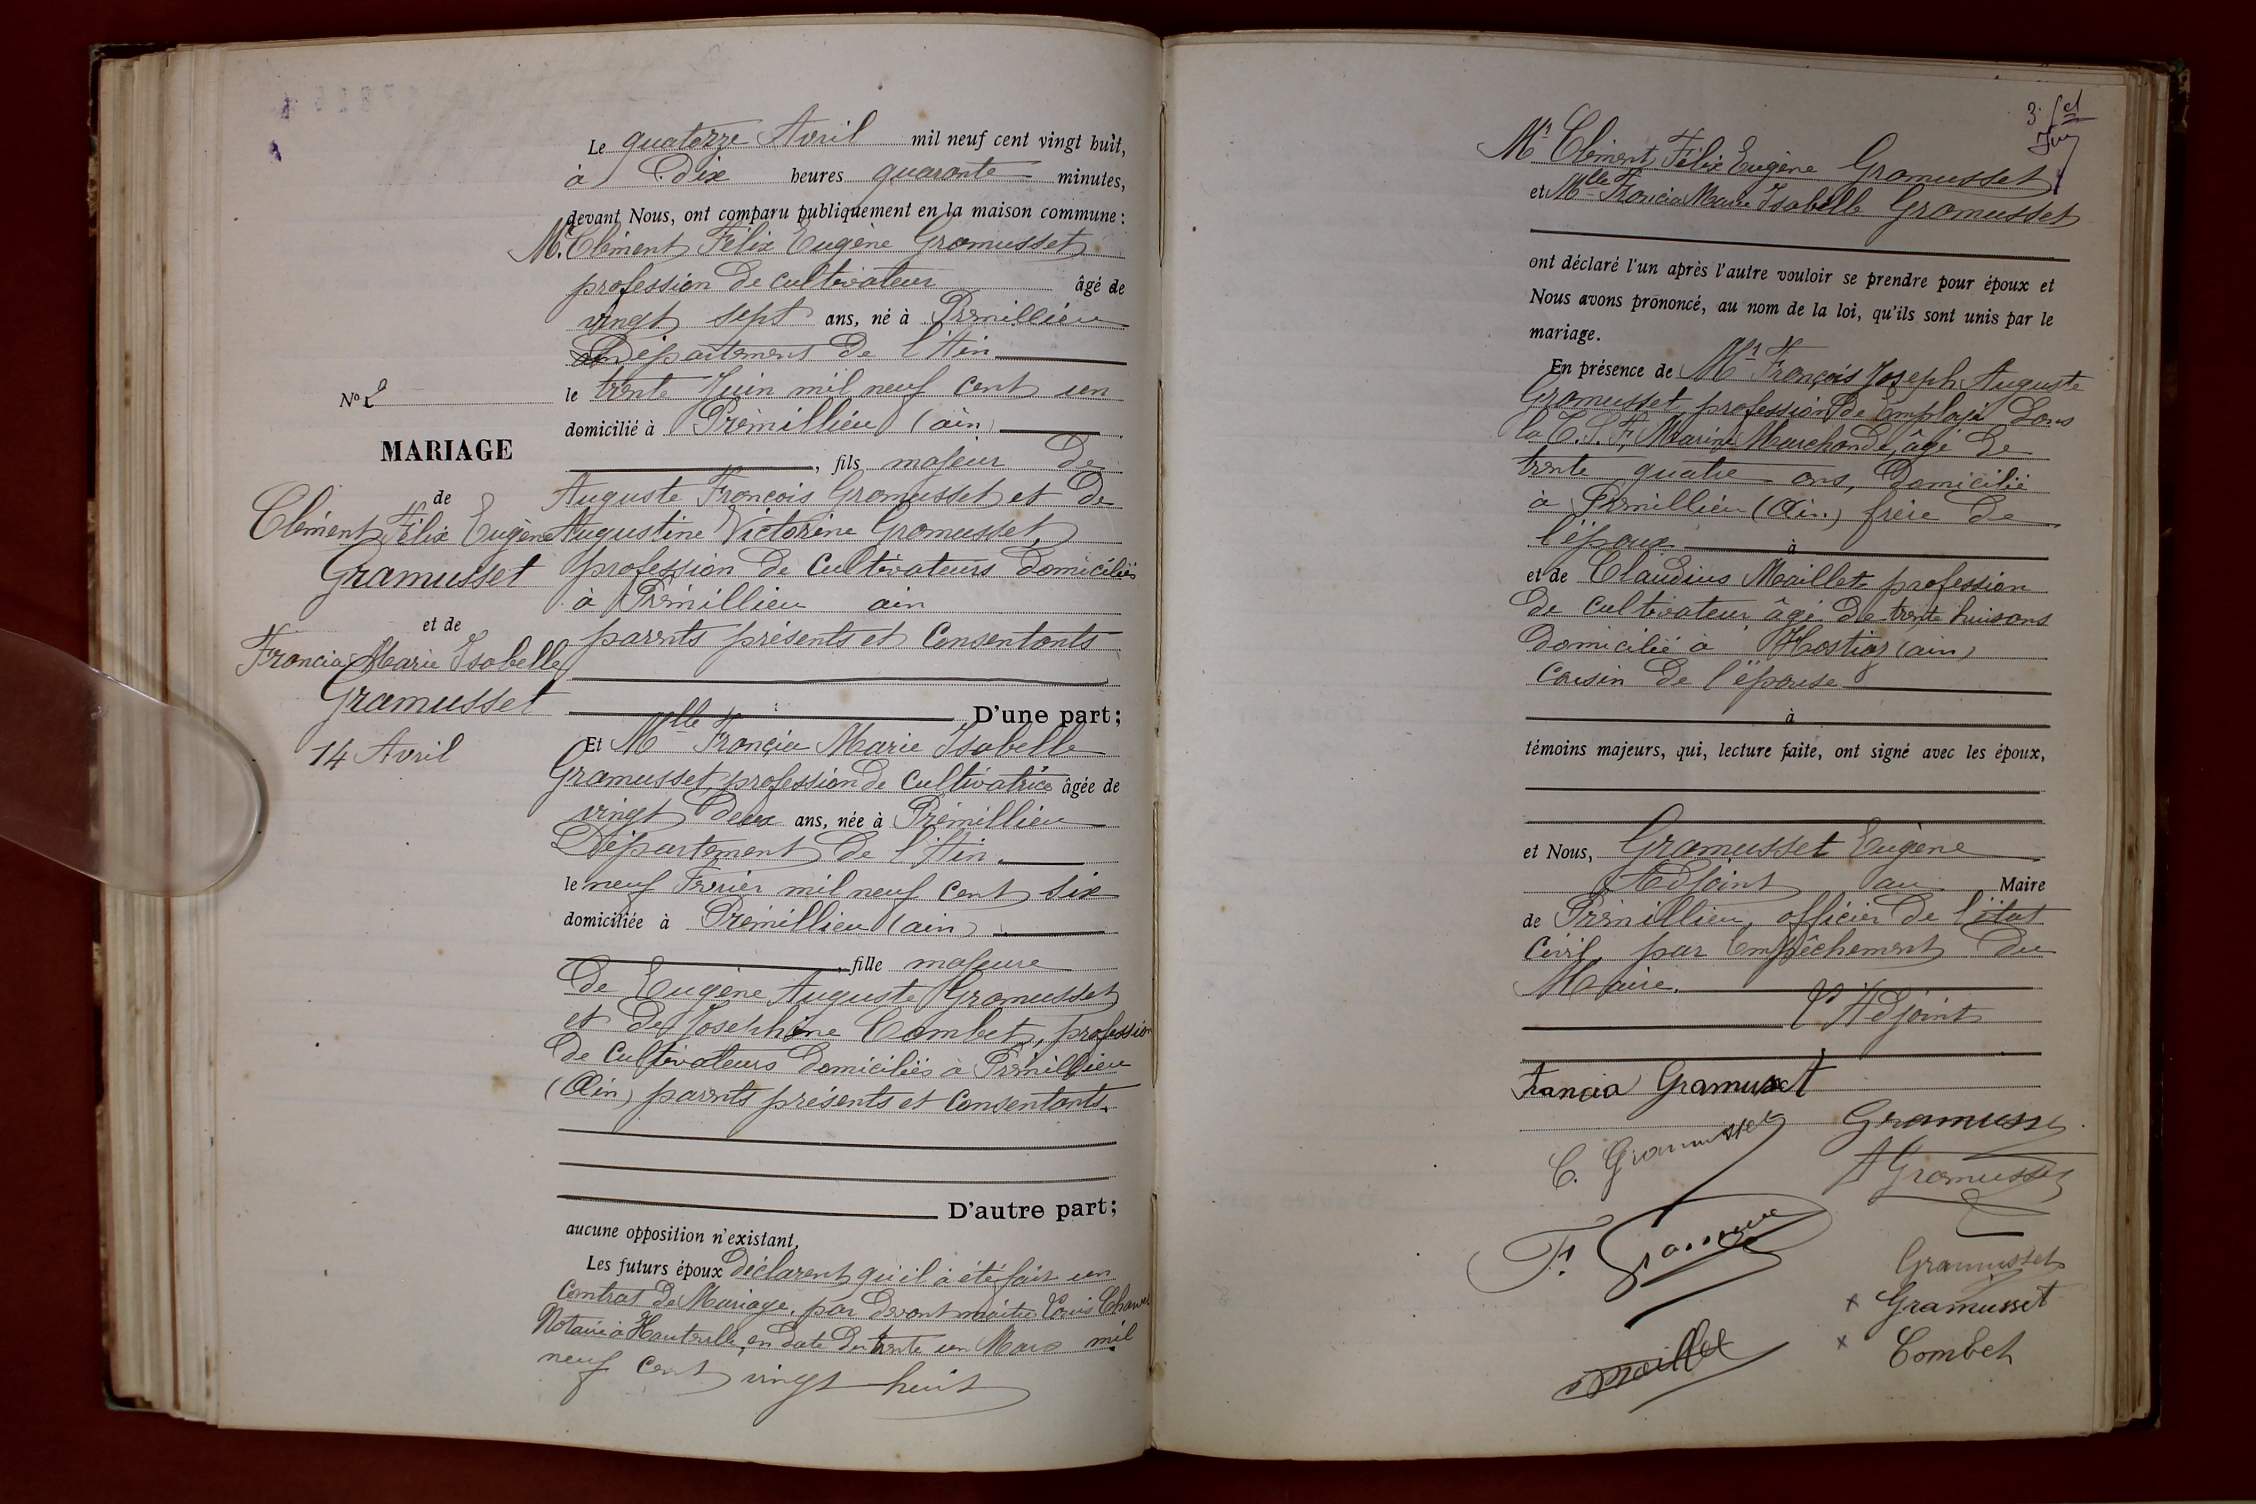 Le quatorze Avril mil neuf cent vingt huit,
à dix heures quarante minutes,
devant Nous, ont comparu publiquement en la maison commune :
Mr Clément Félix Eugène Gramusset
profession de cultivateur âgé de
vingt sept ans, né à Prémillieu
Département de l'Ain
le trente Juin mil neuf cent un
domicilié à Prémillieu (ain)
, fils majeur de
Auguste François Gramusset et de
Augustine Victorine Gramusset,
profession de cultivateurs domiciliés
à Prémillieu ain
parents présents et consentants
D'une part;
No 2
MARIAGE
de
Clément Félix Eugène
Gramusset
et de
Francia Marie Isabelle
Gramusset
14 Avril
Et Mlle Francia Marie Isabelle
Gramusset, profession de cultivatrice âgée de
vingt deux ans, née à Prémillieu
Département de l'Ain
le neuf Frevier mil neuf cent six
domiciliée à Prémillieu (ain)
, fille majeure
de Eugène Auguste Gramusset
et de Joséphine Combet, profession
de cultivateurs domiciliés à Prémillieu
(Ain) parents présents et consentants.
D'autre part;
aucune opposition n'existant,
Les futurs époux déclarent qu'il à été fait un
contrat de Mariage, par devant maître Louis
Notaire à Hauteville, en date du trente un Mars mil
neuf cent vingt huit
3.
Mr Clément Félix Eugène Gramusset
et Mlle Francia Marie Isabelle Gramusset
ont déclaré l'un après l'autre vouloir se prendre pour époux et
Nous avons prononcé, au nom de la loi, qu'ils sont unis par le
mariage.
En présence de Mr François Joseph Auguste
Gramusset, profession de Employé dans
la T.S.F. Marine Marchande, âgé de
trente quatre ans, domicilié
à Prémillieu (Ain) frère de
l'époux
à
et de Claudius Maillet profession
de cultivateur âgé de trente huit ans
domicilié à Hostiaz (ain)
cousin de l'épouse
à
témoins majeurs, qui, lecture faite, ont signé avec les époux,
et Nous, Gramusset Eugène
Adjoint au Maire
de Prémillieu, officier de l'état
civil, par empêchement du
Maire.
L'Adjoint
Francia Gramusset
Gramusset
C. Gramusset
A Gramusset
F.
Gramusset
x Gramusset
Maillet
x Combet